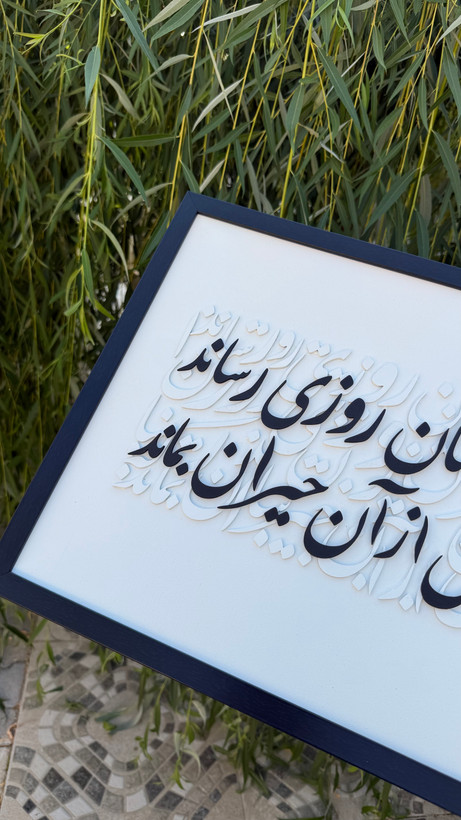 روزی رساند
از آن حیران بماند